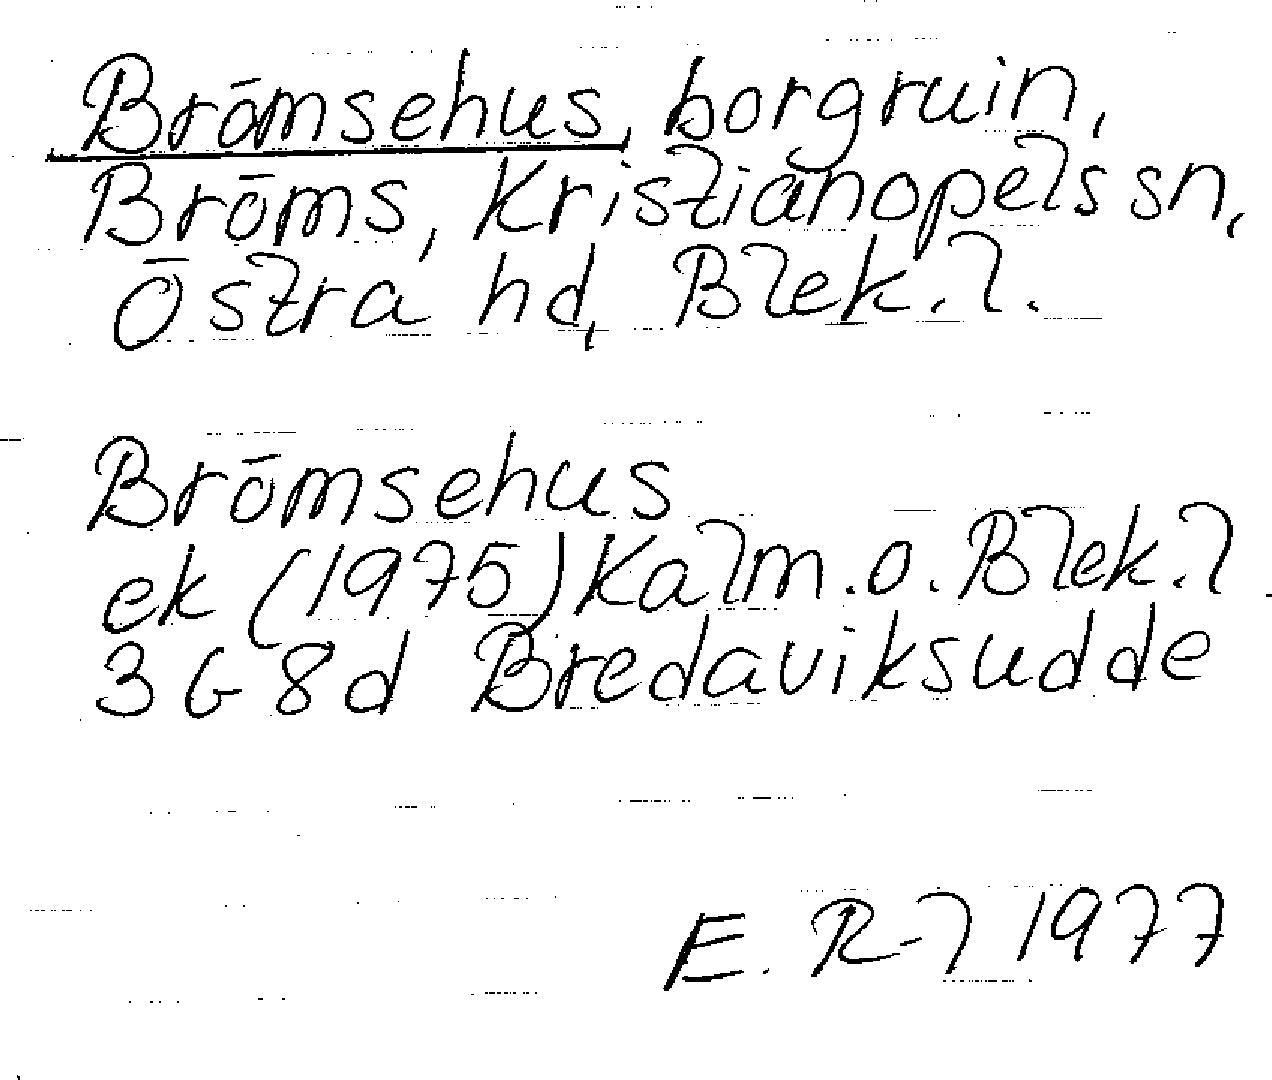 Brömsehus, borgruin,
Bröms, Kristianopels sn,
Östra hd, Blek. l.
Brömsehus
ek (1975) Kalm. o. Blek. l.
3G8d Bredaviksudde
E. R-l 1977